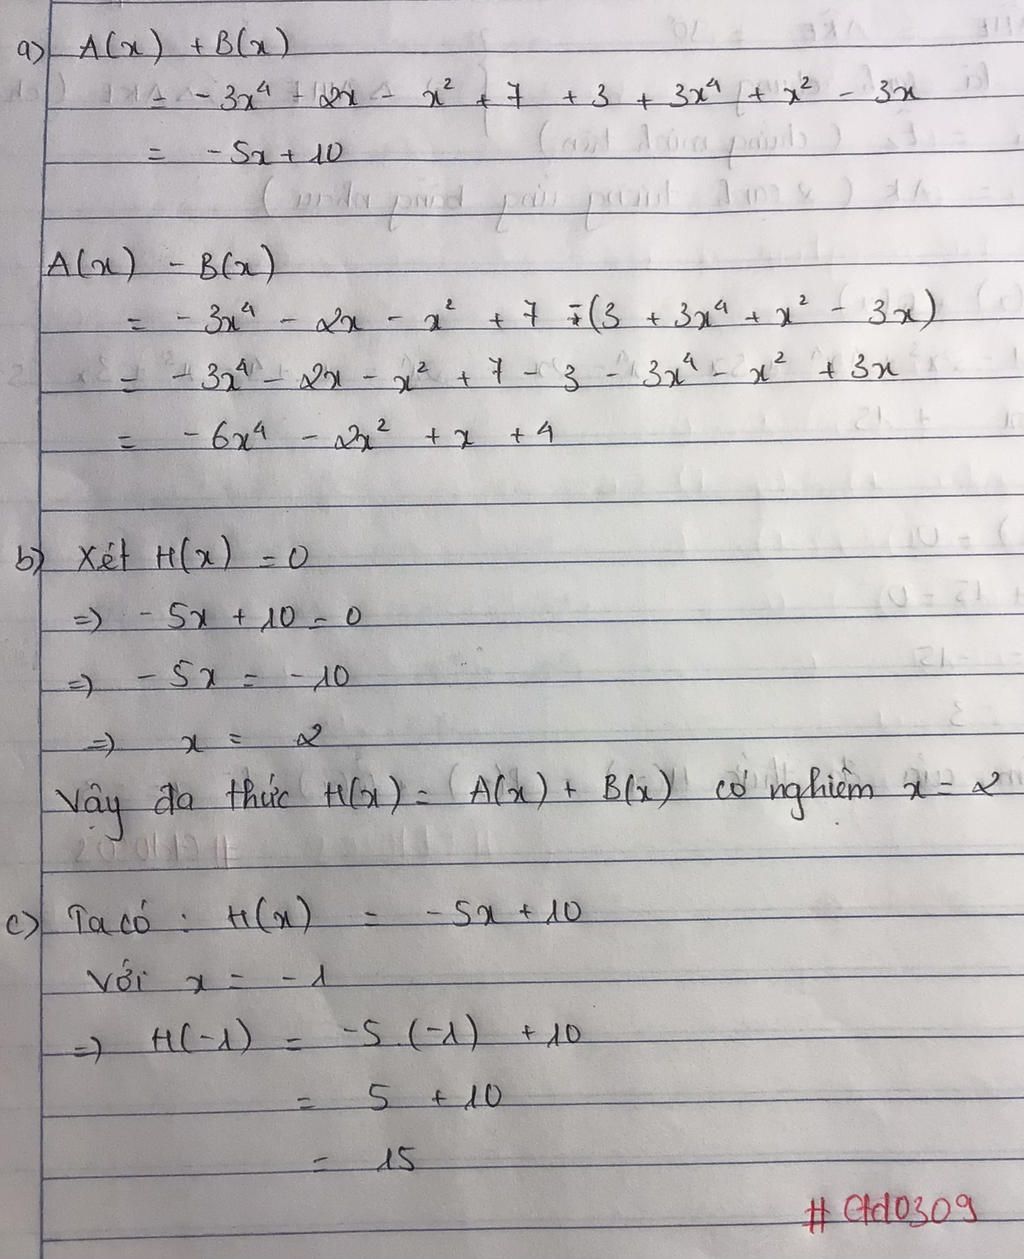 a) A(x) + B(x)
= - 3x⁴ - 2x - x² + 7 + 3 + 3x⁴ + x² - 3x
= - 5x + 10
A(x) - B(x)
= - 3x⁴ - 2x - x² + 7 - (3 + 3x⁴ + x² - 3x)
= - 3x⁴ - 2x - x² + 7 - 3 - 3x⁴ - x² + 3x
= - 6x⁴ - 2x² + x + 4
b) Xét H(x) = 0
=> - 5x + 10 = 0
=> - 5x = - 10
=> x = 2
Vậy đa thức H(x) = A(x) + B(x) có nghiệm x = 2
c) Ta có : H(x) = - 5x + 10
Với x = - 1
=> H(-1) = -5 . (-1) + 10
= 5 + 10
= 15